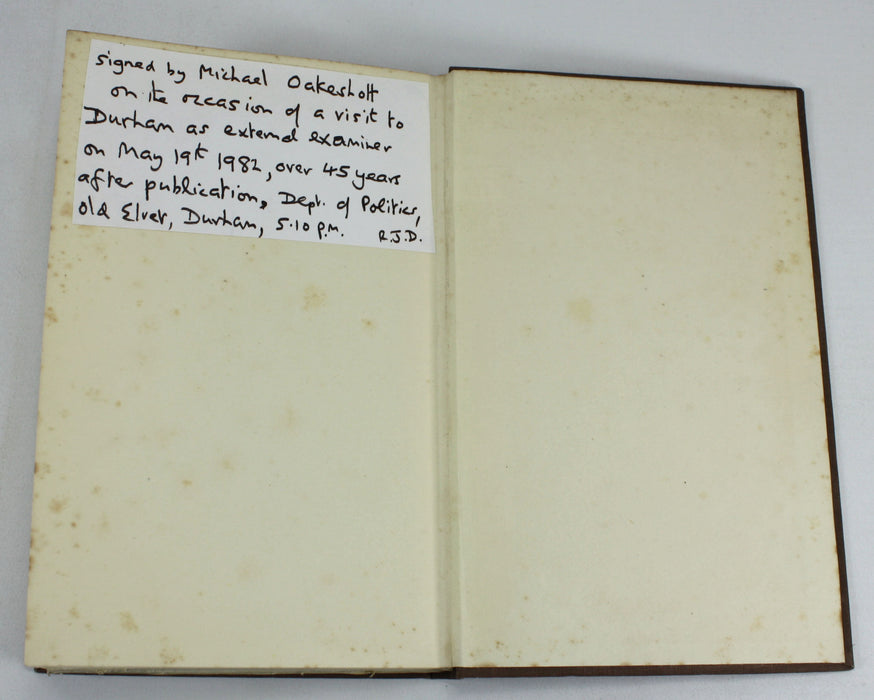 signed by Michael Oakeshott
on the occasion of a visit to
Durham as external examiner
on May 19th 1982, over 45 years
after publication, Dept. of Politics,
Old Elvet, Durham, 5.10 p.m. R.J.D.